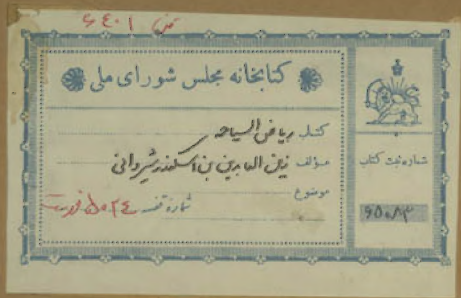 ۶۴۰۱
کتابخانه مجلس شورای ملی
کتاب ریاض السیاحه
مؤلف زین العابدین بن اسکندر شیروانی
موضوع
شماره قفسه ۵۰۲۴
شماره ثبت کتاب
۶۵۰۸۳